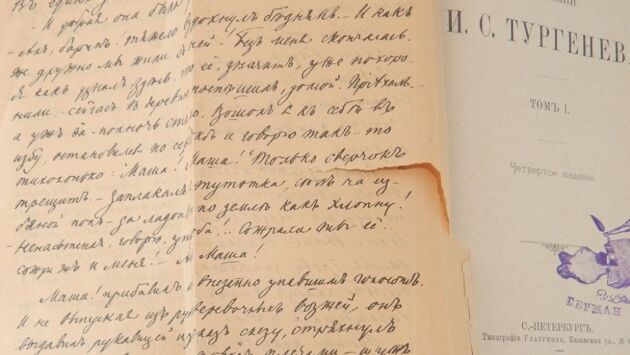 И добрая она была
вздохнулъ бѣднякъ.- И какъ
- Ахъ, баринъ! тяжело
же дружно мы жили съ ней! Безъ меня скончалась.
Я какъ узналъ здѣсь, что ее, значитъ, уже похоро-
нили - сейчасъ въ деревню поспѣшилъ, домой. Пріѣхалъ-
а ужъ за-полночь стало. Вошелъ я къ себѣ въ
избу, остановился по серединѣ и говорю такъ-то
тихохонько: Маша! а Маша! Только сверчокъ
трещитъ.- Заплакалъ я тутотка, сѣлъ на из-
бяной полъ - да ладонью по землѣ какъ хлопну!
Ненасытная, говорю, утроба!.. Сожрала ты ее..
сожри жъ и меня!- Ахъ, Маша!
Маша! прибавилъ онъ внезапно упавшимъ голосомъ.
И не выпуская изъ рукъ веревочныхъ возжей, онъ
выдавилъ рукавицей изъ глазъ слезу, стряхнулъ
И. С. ТУРГЕНЕВ
ТОМЪ I.
Четвертое изданіе.
ГЕРМАН
С.-ПЕТЕРБУРГЪ.
Типографія Глазунова, Казанская ул., № 8